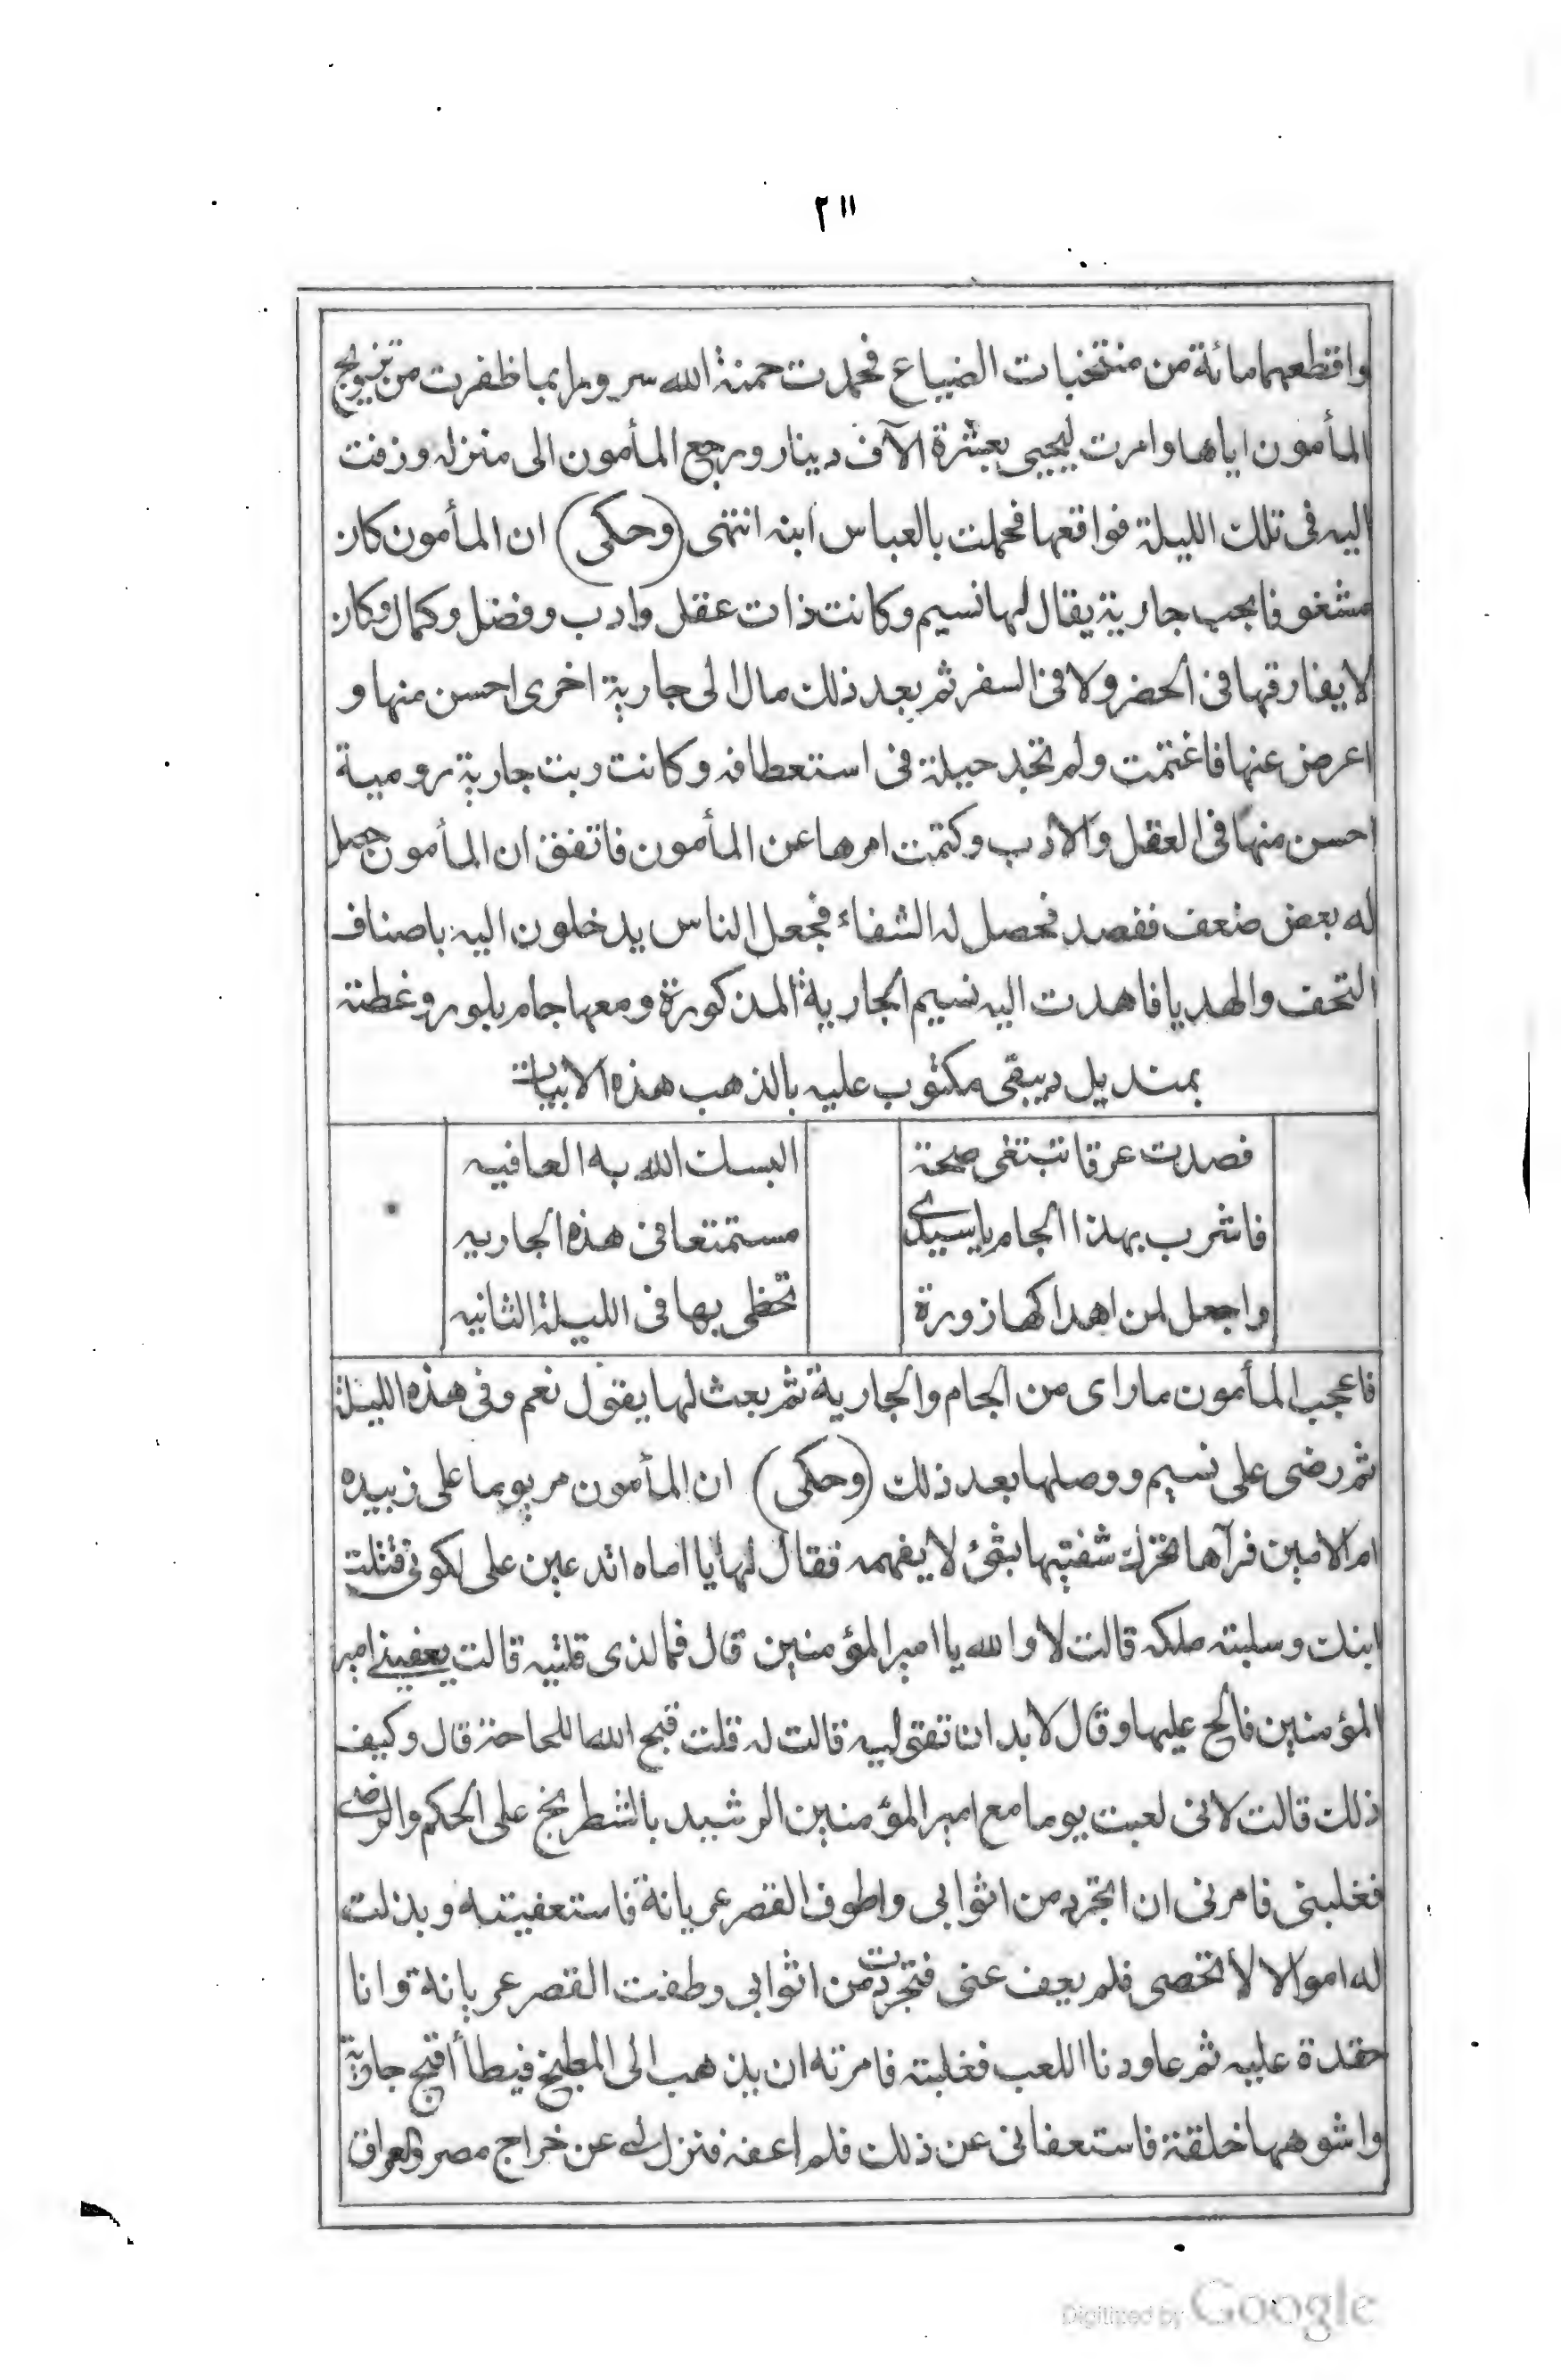 ٢١١
واقطعهما مائة من منتخبات الضياع فحمدت حمنة الله سرورا بما ظفرت من تزويج
المأمون اياها وامرت ليحيى بعشرة الآف دينار ورجع المأمون الى منزله وزفت
اليه فى تلك الليلة فواقعها فحملت بالعباس ابنه انتهى (وحكى) ان المأمون كان
مشغوفا بحب جارية يقال لها نسيم وكانت ذات عقل وادب وفضل وكمال وكان
لا يفارقها فى الحضر ولا فى السفر ثم بعد ذلك مال الى جارية اخرى احسن منها و
اعرض عنها فاغتمت ولم تجد حيلة فى استعطافه وكانت ربت جارية رومية
احسن منها فى العقل والادب وكتمت امرها عن المأمون فاتفق ان المأمون حصل
له بعض ضعف ففصد فحصل له الشفاء فجعل الناس يدخلون اليه باصناف
التحف والهديا فاهدت اليه نسيم الجارية المذكورة ومعها جام بلور وغطته
بمنديل دبيقى مكتوب عليه بالذهب هذه الابيات
فصدت عرقا تبتغى صحة البسك الله به العافيه
فاشرب بهذا الجام يا سيدى مستمتعا فى هذه الجاريه
واجعل لمن اهداكها زورة تحظى بها فى الليلة الثانيه
فاعجب المأمون ما راى من الجام والجارية ثم بعث لها يقول نعم وفى هذه الليلة
ثم رضى على نسيم ووصلها بعد ذلك (وحكى) ان المأمون مر يوما على زبيده
ام الامين فرآها تحرك شفتيها بشئ لا يفهمه فقال لها يا اماه اتدعين على لكونى قتلت
ابنك وسلبته ملكه قالت لا والله يا امير المؤمنين قال فما الذى قلتيه قالت يعفينى امير
المؤمنين فالح عليها وقال لا بد ان تقوليه قالت له قلت قبح الله اللحاحة قال وكيف
ذلك قالت لانى لعبت يوما مع امير المؤمنين الرشيد بالشطرنج على الحكم والرضى
فغلبنى فامرنى ان اتجرد من اثوابى واطوف القصر عريانة فاستعفيته وبذلت
له اموالا لا تحصى فلم يعف عنى فتجردت من اثوابى وطفت القصر عريانة وانا
حقدة عليه ثم عاودنا اللعب فغلبته فامرته ان يذهب الى المطبخ فيطأ أقبح جارية
واشوهها خلقة فاستعفانى عن ذلك فلم اعفه فنزل لى عن خراج مصر والعراق
Digitized by Google